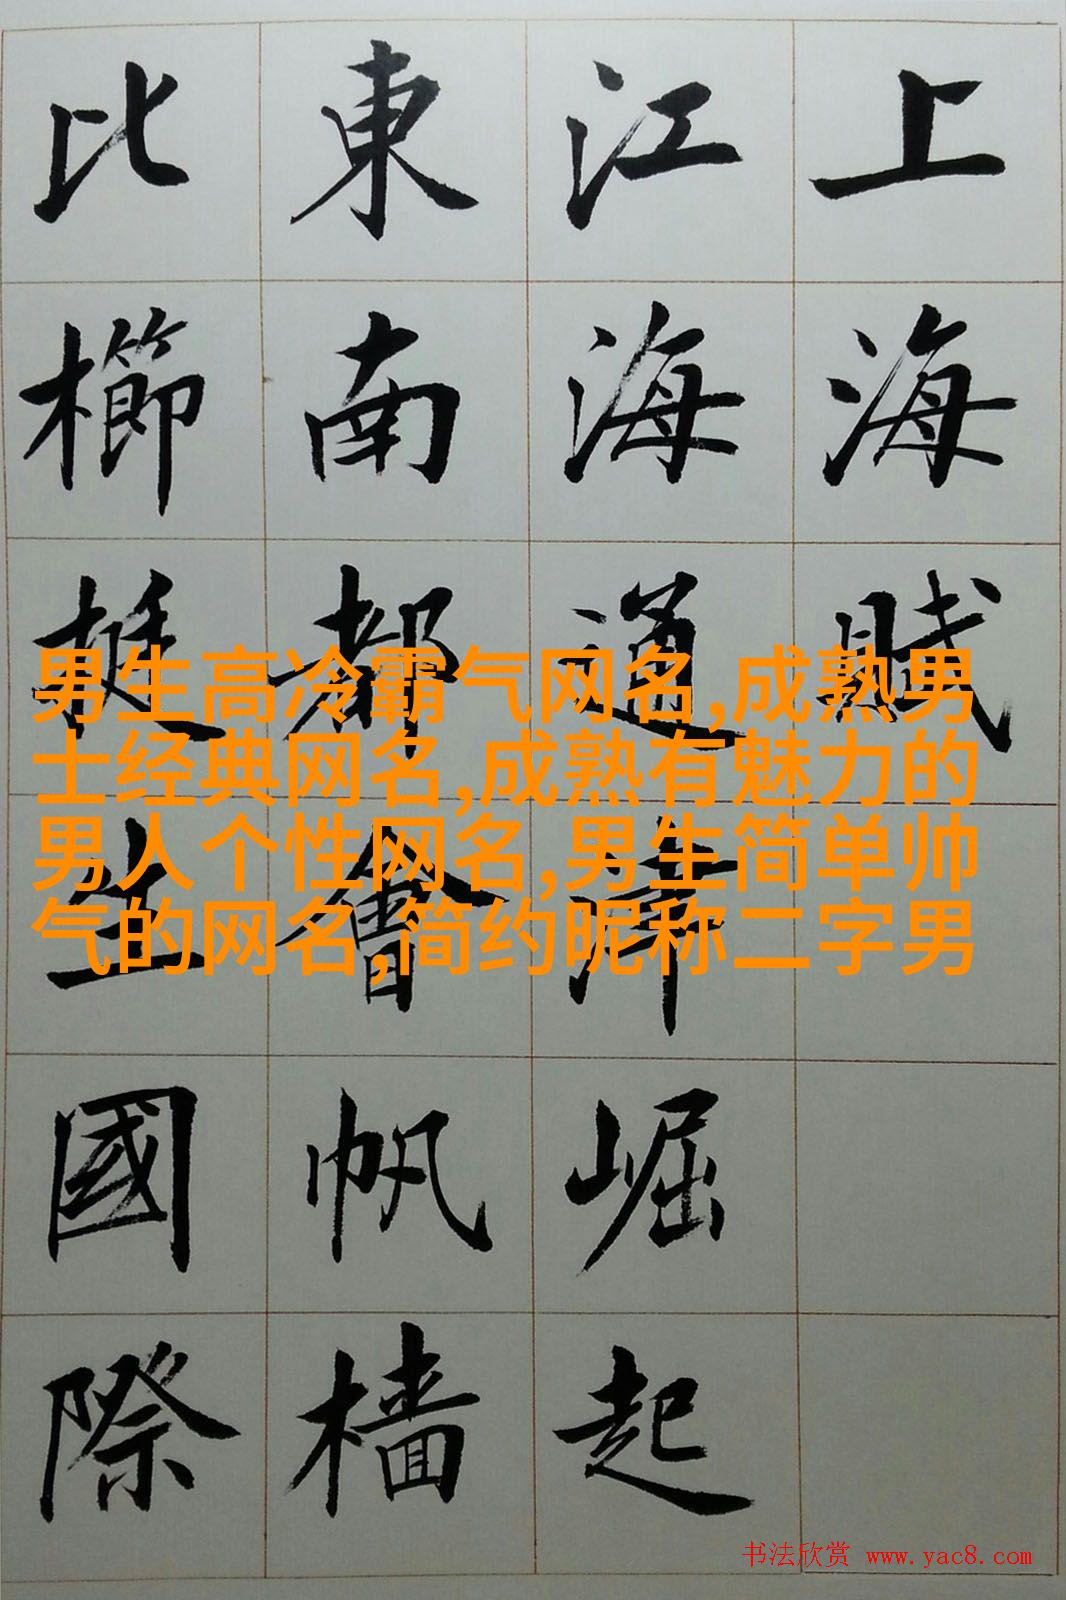 上海賦
江海通津崛起
東南都會帆檣
比櫛挺生國際
男生高冷霸气网名,成熟男
士经典网名,成熟有魅力的
男人个性网名,男生简单帅
气的网名,简约昵称二字男
书法欣赏 www.yac8.com